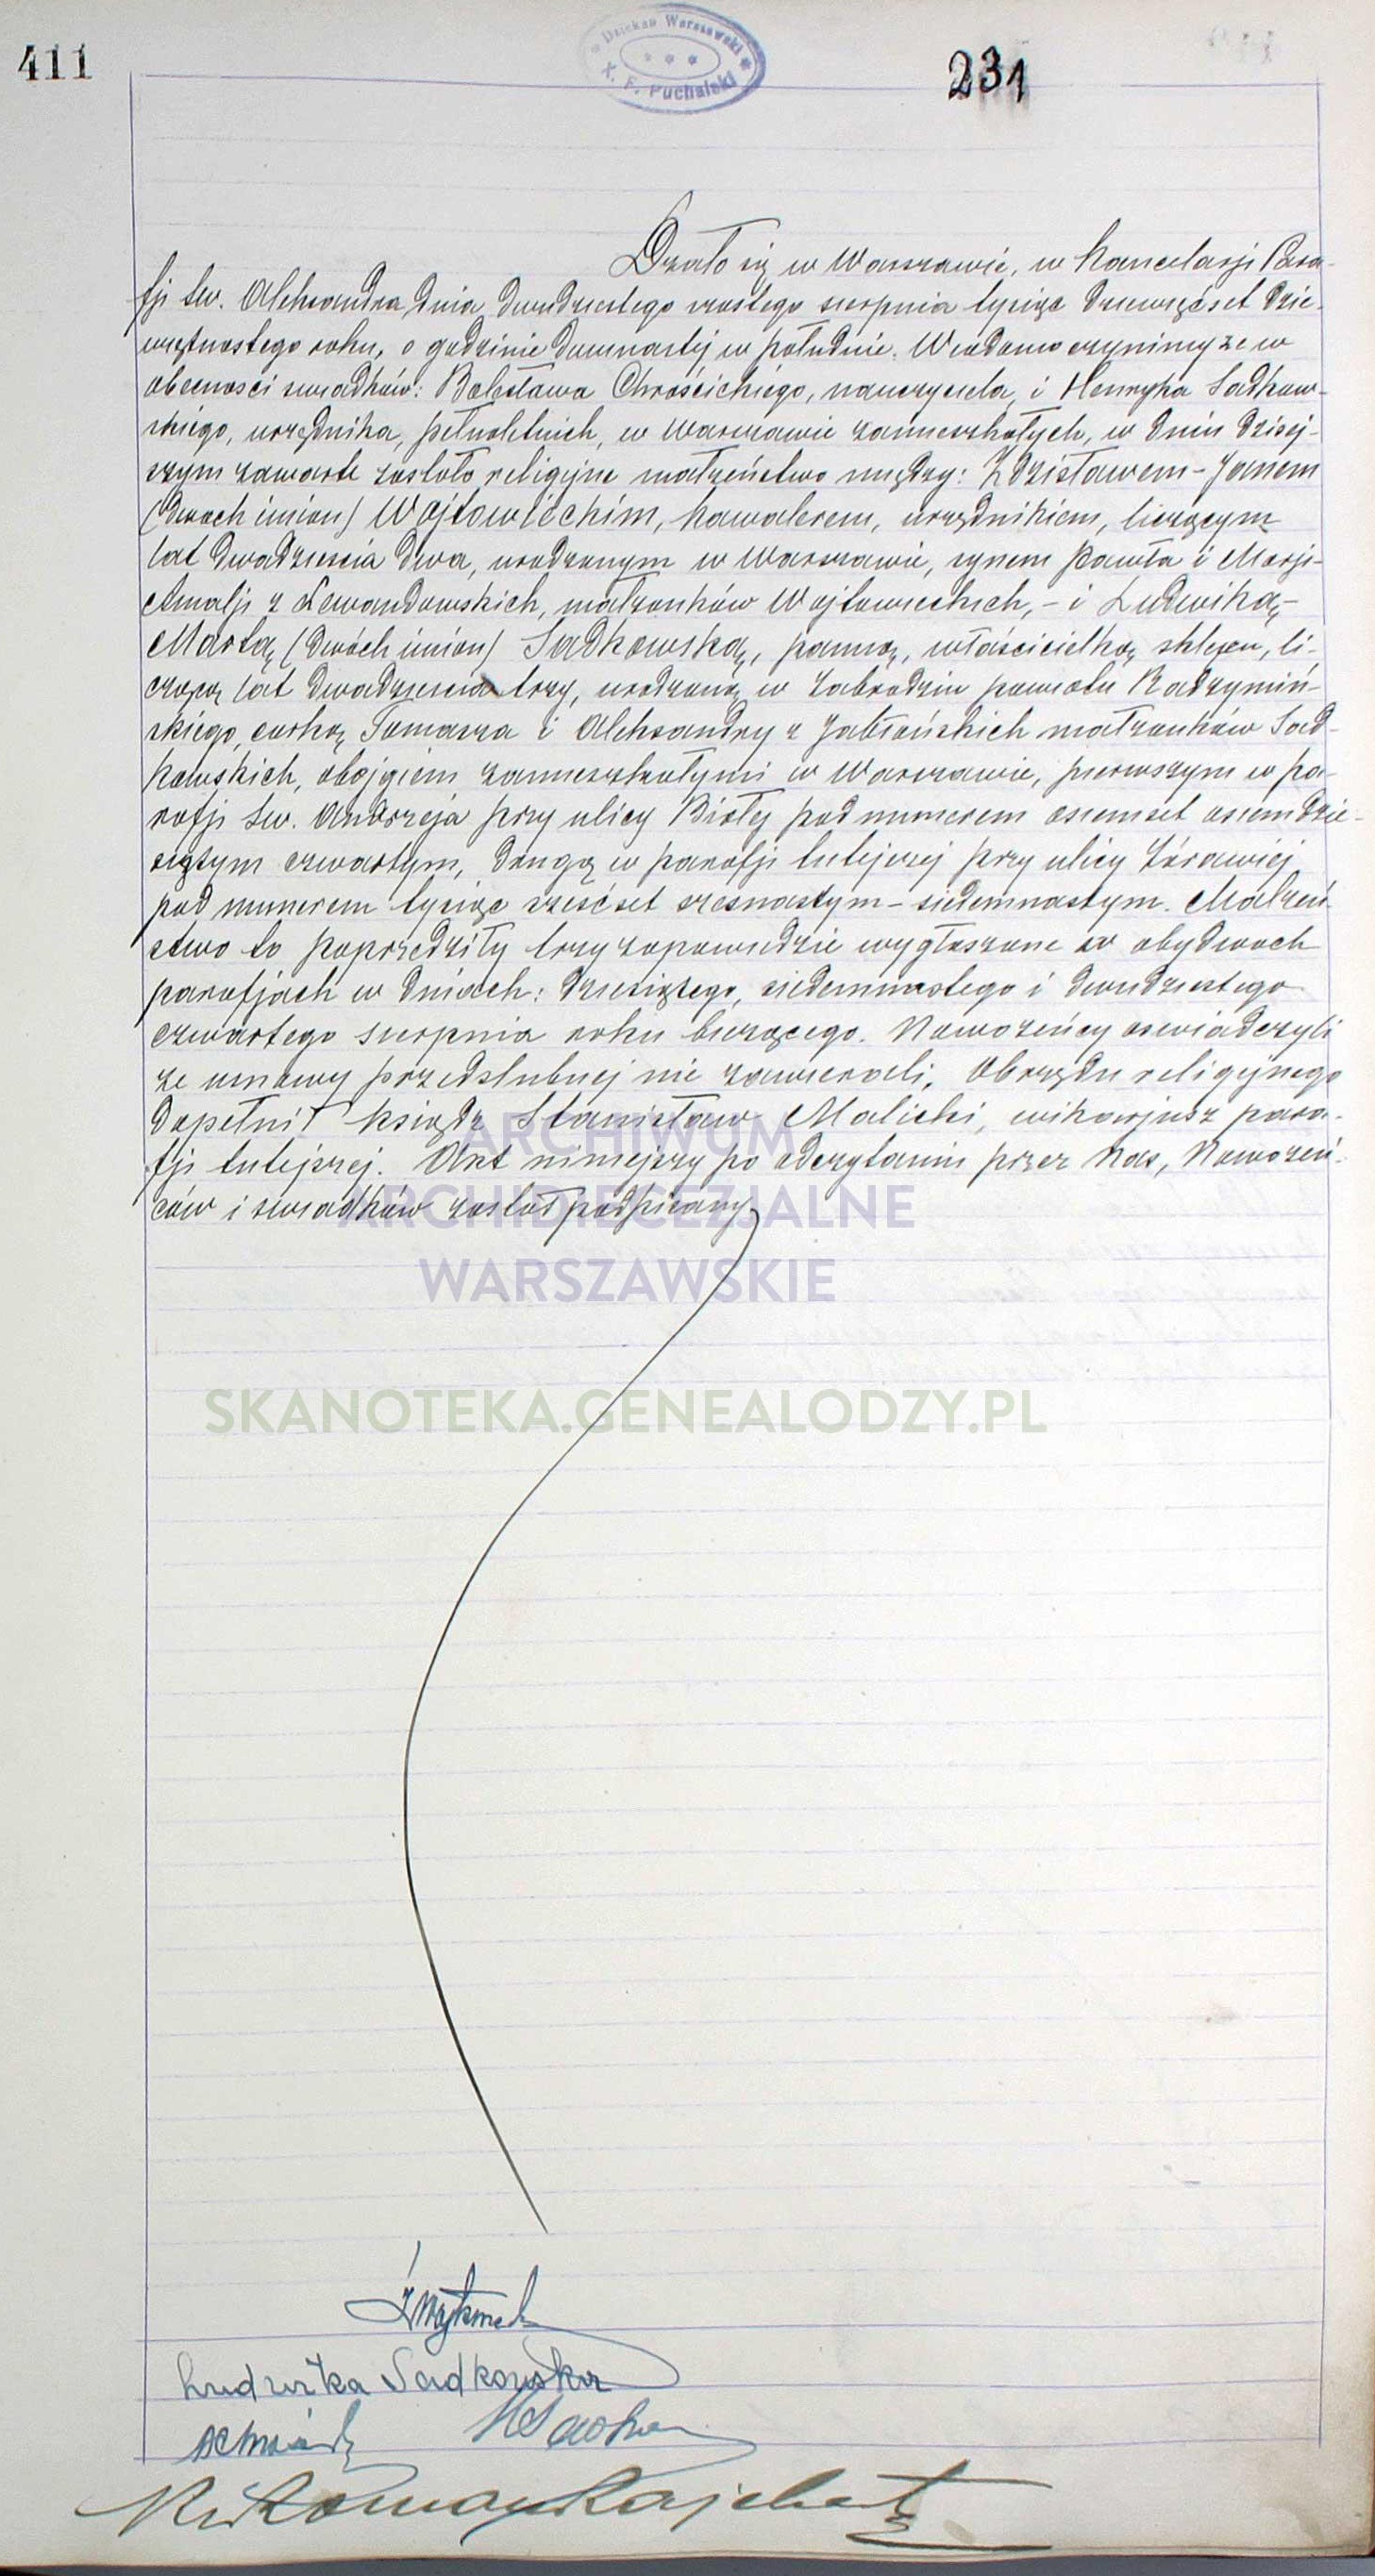 411
w Dziekan Warszawski
X. F. Puchalski
231
Działo się w Warszawie, w Kancelarji Para-
fji św. Aleksandra dnia dwudziestego szóstego sierpnia tysiąc dziewięćset dzie-
więtnastego roku, o godzinie dwunastej w południe. Wiadomo czynimy że w
obecności świadków: Bolesława Chrościckiego, nauczyciela, i Henryka Sadkow-
skiego, urzędnika, pełnoletnich, w Warszawie zamieszkałych, w dniu dzisiej-
szym zawarte zostało religijne małżeństwo między: Zdzisławem-Janem
(dwóch imion) Wojtowieckim, kawalerem, urzędnikiem, liczącym
lat dwadzieścia dwa, urodzonym w Warszawie, synem Pawła i Marji-
Amalji z Lewandowskich, małżonków Wojtowieckich, - i Ludwiką-
Martą (dwóch imion) Sadkowską, panną, właścicielką sklepu, li-
czącą lat dwadzieścia trzy, urodzoną w Zabrodziu powiatu Radzymiń-
skiego, córką Tomasza i Aleksandry z Jabłońskich małżonków Sad-
kowskich, obojgiem zamieszkałymi w Warszawie, pierwszym w pa-
rafji św. Andrzeja przy ulicy Białej pod numerem osiemset osiemdzie-
siątym czwartym, drugą w parafji tutejszej przy ulicy Żórawiej
pod numerem tysiąc sześćset szesnastym-siedemnastym. Małżeń-
stwo to poprzedziły trzy zapowiedzie wygłaszane w obydwóch
parafjach w dniach: dziesiątego, siedemnastego i dwudziestego
czwartego sierpnia roku bieżącego. Nowożeńcy oświadczyli
że umowy przedślubnej nie zawierali. Obrzędu religijnego
dopełnił ksiądz Stanisław Malicki, wikarjusz para-
fji tutejszej. Akt niniejszy po odczytaniu przez Nas, Nowożeń-
ców i świadków został podpisany
ARCHIWUM
ARCHIDIECEZJALNE
WARSZAWSKIE
SKANOTEKA.GENEALODZY.PL
Ludwika Sadkowska